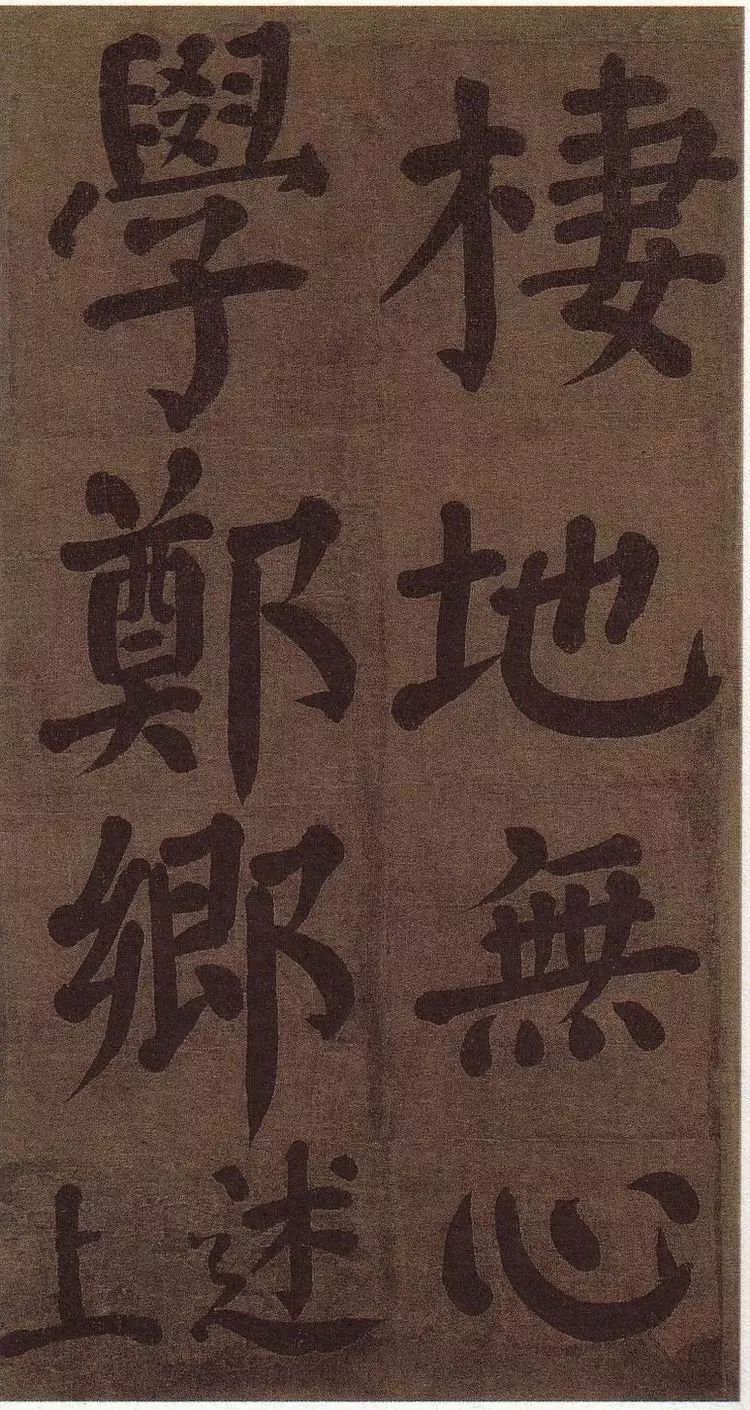 棲地無心
學鄭鄉述
上